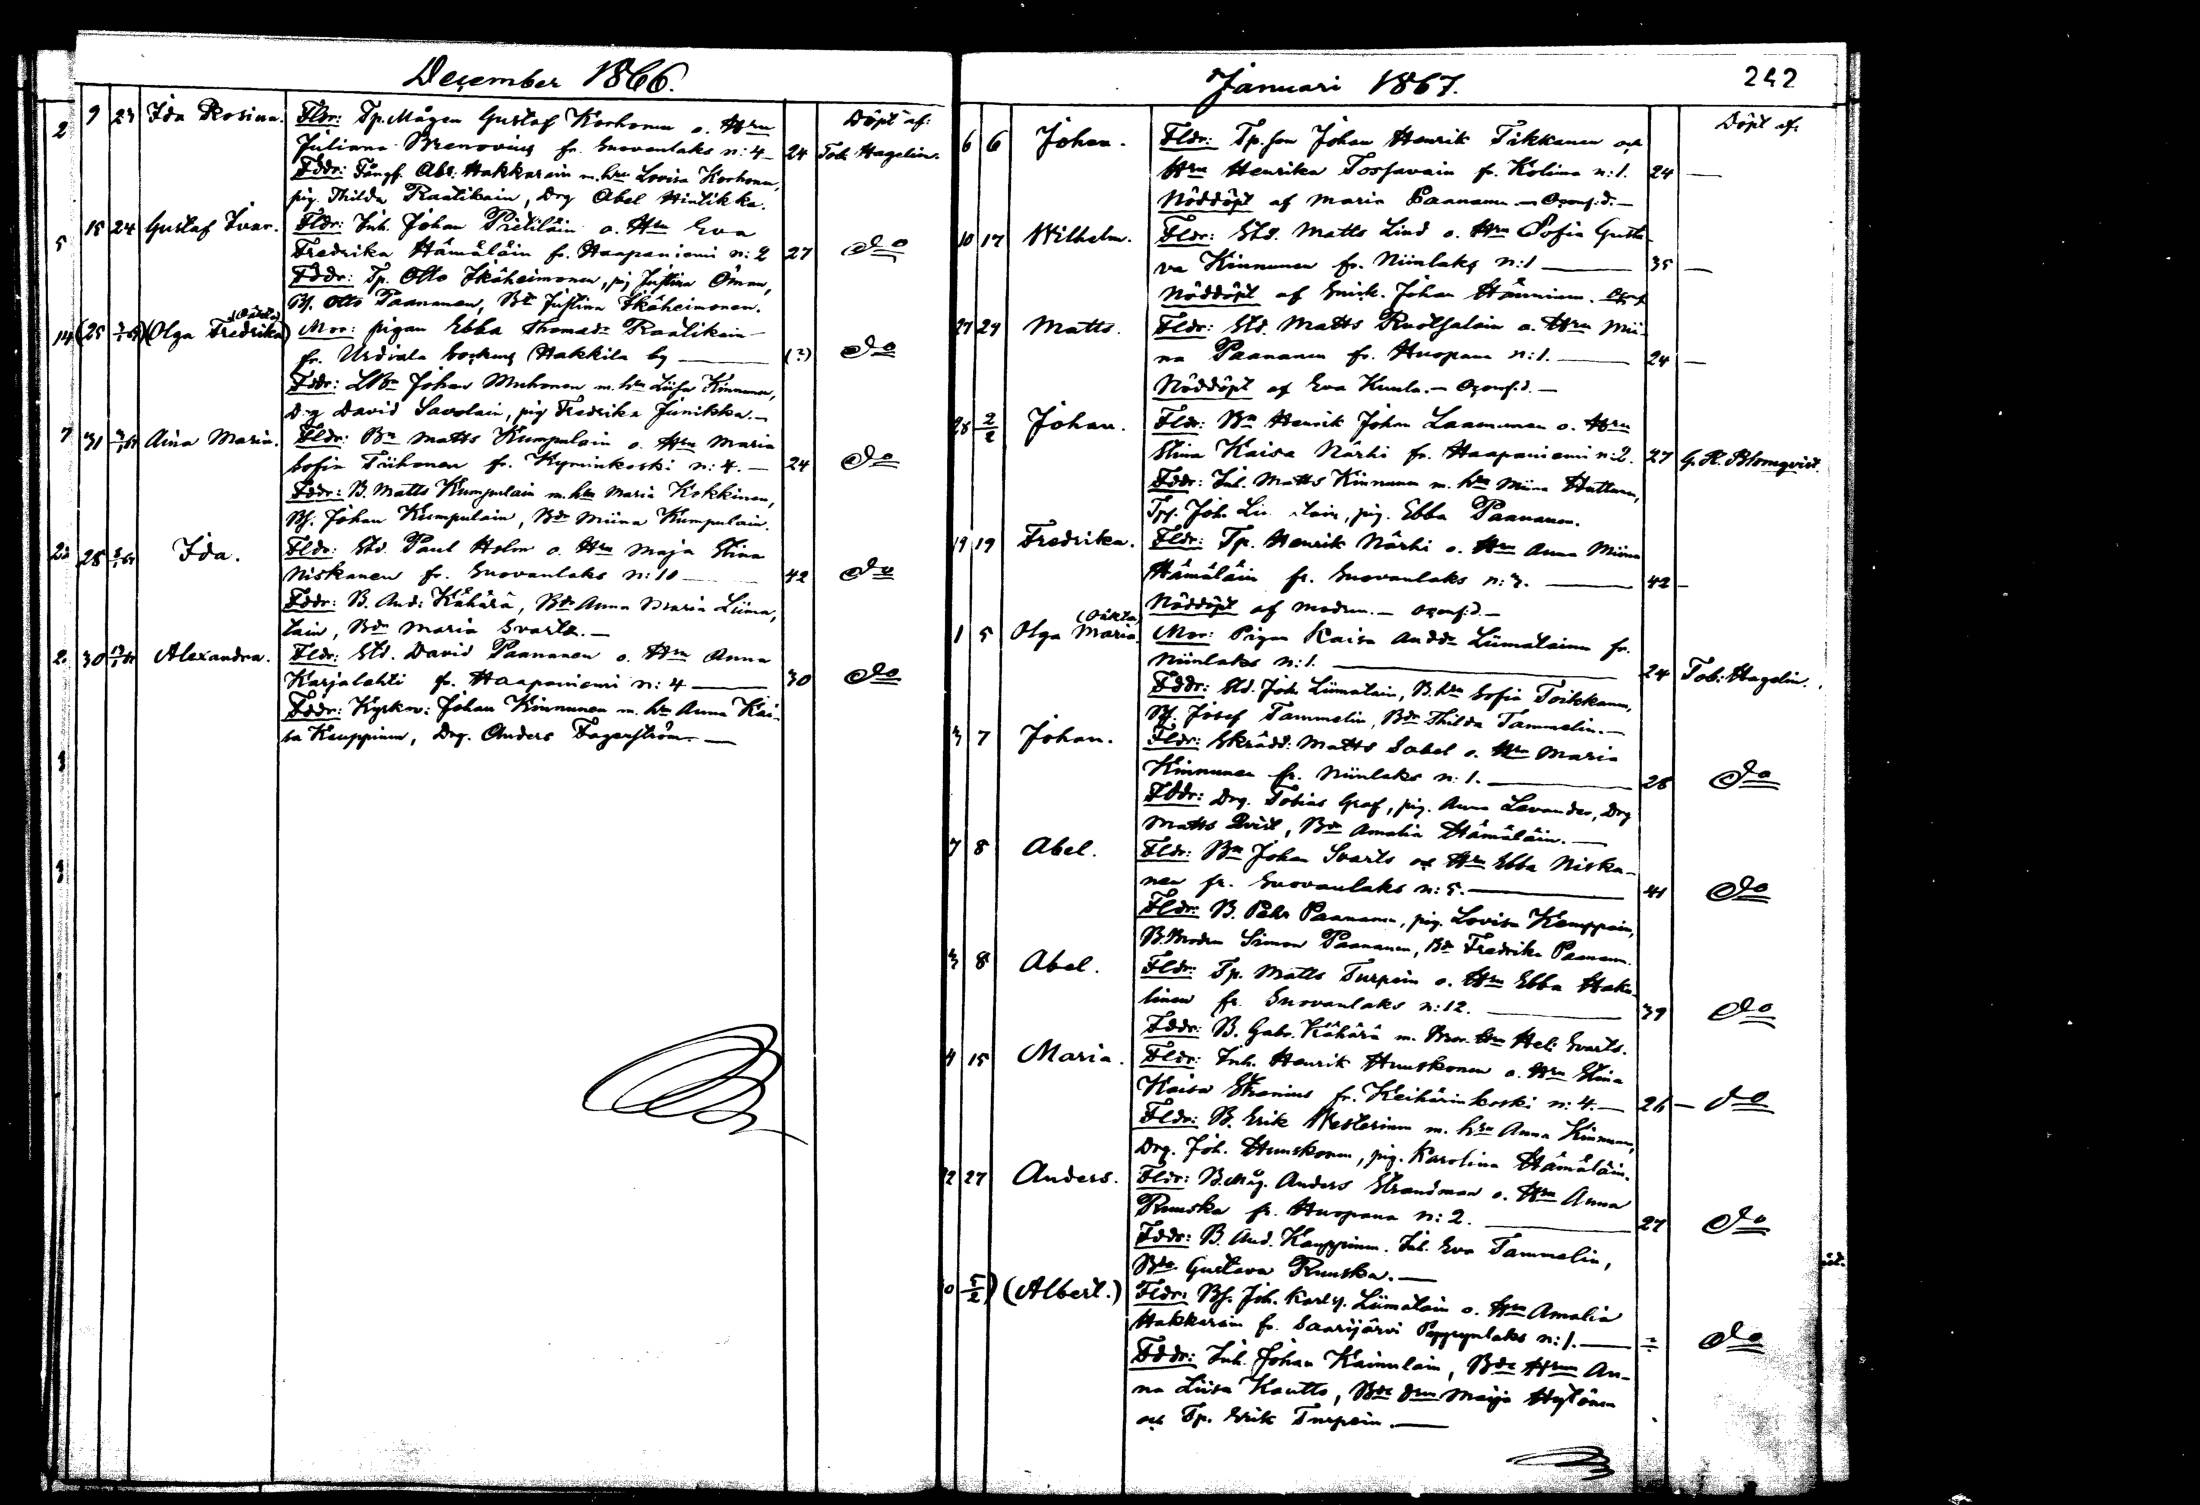 December 1866.
Döpt af:
9 23 Ida Rosina. Fldr: Tp.Mågen Gustaf Korhonen o. Hru
Juliana Brenovius fr. Suovanlaks n:4 24 Tob. Hagelin.
Fddr: Abr. Hakkarain m. hru Lovisa Korhonen,
pig. Thilda Raatikain, Drg Abel Hintikka.
15 24 Gustaf Ivar. Fldr: Inh. Johan Pietiläin o. Hru Eva
Fredrika Hämäläin fr. Haapaniemi n:2 27 do
Fddr: Tp. Otto Ikäheimonen, pig Justina Öman,
Bs. Otto Paananen, Bdr Justina Ikäheimonen.
(oäkta)
(25 (Olga Fredrika) Mor: pigan Ebba Thomasdr Raatikain
fr. Urdiala Socken Hakkila by (?) do
Fddr: LBn Johan Muhonen m. hru Liisa Kinnunen,
Drg David Savolain, pig Fredrika Junikka.—
31 Aina Maria. Fldr: Bn Matts Kumpulain o. Hru Maria
Sofia Tiihonen fr. Kyminkoski n:4.— 24 do
Fddr: B. Matts Kumpulain m. hru Maria Kokkinen,
Bs. Johan Kumpulain, Bdr Miina Kumpulain.
28 Ida. Fldr: Std. Paul Holm o. Hru Maja Stina
Niskanen fr. Suovanlaks n:10 42 do
Fddr: B. And: Kähärä, Bdr Anna Maria Liima,
tain, Bdr Maria Svarts.—
30 Alexandra. Fldr: Std. David Paananen o. Hru Anna
Karjalahti fr. Haapaniemi n:4 30 do
Fddr: Kyrkov: Johan Kinnunen m. hru Anna Kai-
sa Kauppinen, Drg. Anders Fagerström.—
Januari 1867.
242
Döpt af:
6 6 Johan. Fldr: Tp.son Johan Henrik Tikkanen och
Hru Henrika Tossavain fr. Kolima n:1. 24 —
Nöddöpt af Maria Paananen —
10 17 Wilhelm. Fldr: Std. Matts Lind o. Hru Sofia Gusta-
va Kinnunen fr. Niinlaks n:1 35 —
Nöddöpt af Johan Hänninen.
27 29 Matts. Fldr: Std. Matts Ruotsalain o. Hru Mii-
na Paananen fr. Huopana n:1. 24 —
Nöddöpt af Eva Kuula.—
28 2/2 Johan. Fldr: Bn Henrik Johan Laamanen o. Hru
Stina Kaisa Närhi fr. Haapaniemi n:2. 27 G. R. Blomqvist.
Fddr: Inh. Matts Kinnunen m. hru Miina Huttunen,
Tps. Joh. pig. Ebba Paananen.
19 19 Fredrika. Fldr: Tp. Henrik Närhi o. Hru Anna Miina
Hämäläin fr. Suovanlaks n:3. 42 —
Nöddöpt af modren.—
(oäkta)
1 5 Olga Maria. Mor: Pigan Kaisa Andrdr Liimatainen fr.
Niinlaks n:1. 24 Tob: Hagelin.
Fddr: Std. Joh. Liimatain, B.hru Sofia
Bs. Josef Tammelin, Bdr Thilda Tammelin.—
3 7 Johan. Fldr: Skrädd: Matts Sabel o. Hru Maria
Kinnunen fr. Niinlaks n:1. 28 do
Fddr: Drg. Tobias Graf, pig. Anna Lavander, Drg
Matts Qvist, Bdr Amalia Hämäläin.—
7 8 Abel. Fldr: Bn Johan Svarts och Hru Ebba Niska-
nen fr. Suovanlaks n:5. 41 do
Fddr: B. Pehr Paananen, pig. Lovisa Kemppain,
B.Broder Simon Paananen, Bdr Fredrika Paananen.
3 8 Abel. Fldr: Tp. Matts Turpein o. Hru Ebba Haka-
linen fr. Suovanlaks n:12. 39 do
Fddr: B. Gabr. Kähärä m. Hru Hel: Svarts.
4 15 Maria. Fldr: Inh. Henrik Hunskonen o. Hru Stina
Kaisa Stranius fr. Keihärinkoski n:4.— 26 — do
Fddr: B. Erik Westerinen m. hru Anna Kinnunen,
Drg. Joh. Hunskonen, pig. Karolina Hämäläin.
22 27 Anders. Fldr: B.Måg. Anders Strandman o. Hru Anna
Ruuska fr. Huopana n:2. 27 do
Fddr: B. And. Kauppinen. Inh. Eva Tammelin,
Bdr Gustava Ruuska.—
5/2) (Albert.) Fldr: Bs. Joh. Karlss. Liimatain o. Hru Amalia
Hakkarain fr. Saarijärvi n:1. do
Fddr: Inh. Johan Kainulain, Bde Hru An-
na Liisa Kautto, Bde Maija Hytönen
och Tp. Erik Turpein.—